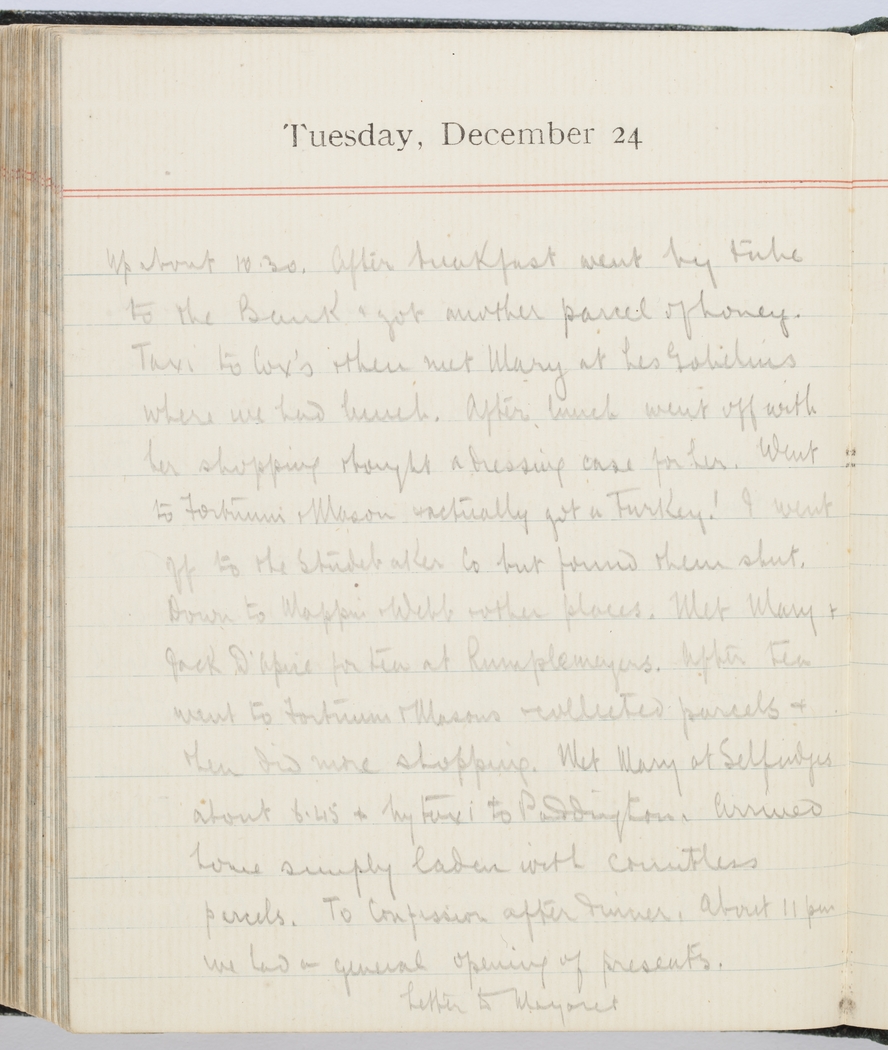 Tuesday, December 24
Up about 10.30. After breakfast went by tube
to the Bank & got another parcel of honey.
Taxi to Cox's & then met Mary at Les Gobelins
where we had lunch. After lunch went off with
her shopping & bought a dressing case for her. Went
to Fortnum & Mason & actually got a Turkey! I went
off to the Studebaker Co but found them shut.
Down to Mappin & Webb & other places. Met Mary &
Jack D'Apice for tea at Rumplemeyers. After tea
went to Fortnum & Masons & collected parcels &
then did more shopping. Met Mary at Selfridges
about 6.45 & by taxi to Paddington. Arrived
home simply laden with countless
parcels. To Confession after dinner. About 11 pm
we had a general opening of presents.
Letter to Margaret